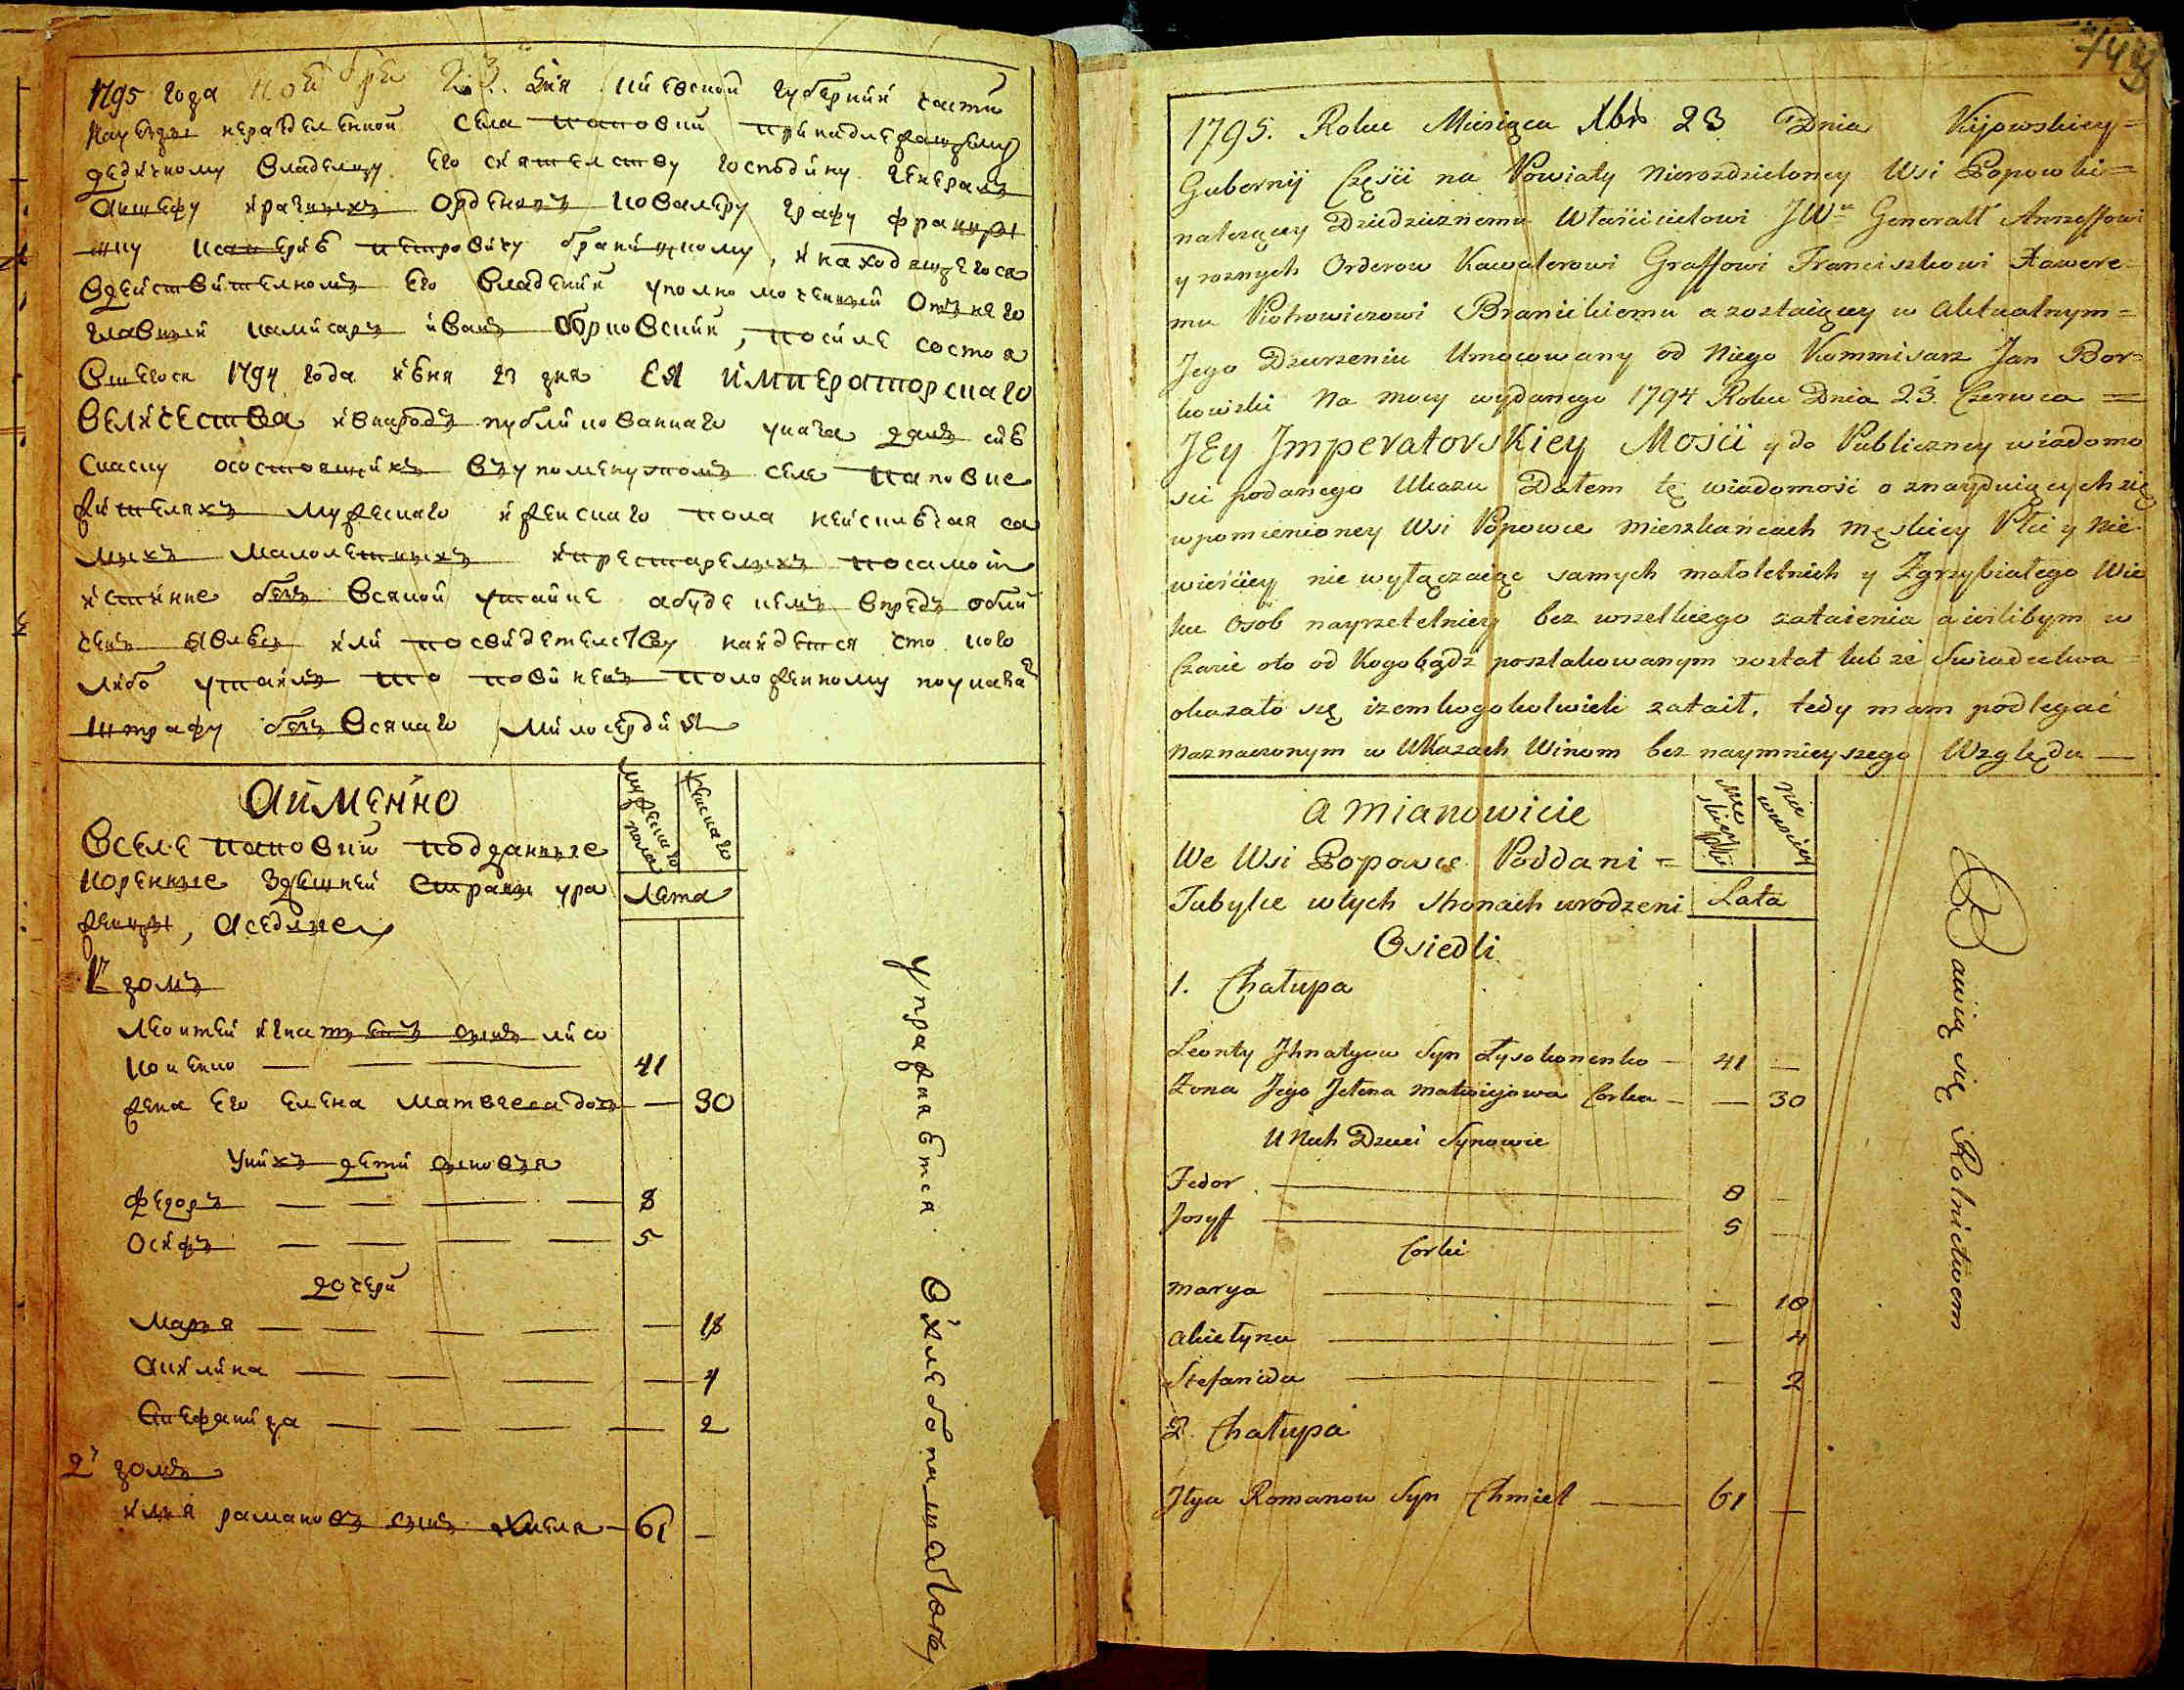 1795 года ноября 23. дня киевской губернии части
на уезды неразделенной села поповки принадлежащему
дедичному владелцу его сиятелству господину генералъ
аншефу и разныхъ орденовъ ковалеру графу францы
шку ксаверию петровичу браницкому, и находящегося
вдействителномъ его владении уполномоченный отънего
главный комисаръ иванъ борковский, посиле состоя
вшегося 1794 года июня 23 дня ея императорскаго
величества ивнародъ публикованнаго указа далъ сию
скаску осостоящихъ въупомянутомъ селе поповке
жителяхъ мужескаго иженскаго пола неисключая са
мыхъ малолетныхъ ипрестарелыхъ посамой
истинне безъ всякой утайки абуде кемъ впредъ обли
ченъ явлюсь или посвидетелству найдется что кого
либо утаилъ то повиненъ положенному поуказа
штрафу безъ всякаго милосердия
Аимянно
Вселе поповки подданные
коренные здешней страны ура
женцы, аседлые
мужеска го пола
женскаго
Лета
1й домъ
Леонтей игнатьевъ сынъ лисо
коненко — — — 41
жена его елена матвеева дочь — 30
унихъ дети сыновья
федоръ — — — — 8
осифъ — — — — 5
дочери
марья — — — — — 18
акилина — — — — 4
стефанида — — — — 2
2й домъ
илья романовъ сынъ хмель — 61 —
Упражняется вхлебопашестве
743
1795. Roku Miesiąca Xbrs 23 Dnia Kijowskiey=
Gubernij Części na Powiaty nierozdzieloney Wsi Popowki=
należącey Dziedzicznemu Właścicielowi JWu Generałł Anszeffowi
y roznych Orderow Kawalerowi Graffowi Franciszkowi Xawere-
mu Piotrowiczowi Branickiemu a zostaiącey w Aktualnym=
Jego Dzierzeniu Umocowany od Niego Kommisarz Jan Bor=
kowski Na mocy wydanego 1794 Roku Dnia 23. Czerwca =
JEy Jmperatorskiey Mości y do Publiczney wiadomo
sci podanego Ukazu Dałem tę wiadomość o znayduiących się
wpomienioney Wsi Popowce mieszkańcach męskiey Płci y Nie
wieściey nie wyłączaiąc samych małoletnich y Zgrzybiałego Wie
ku Osób nayrzetelniey bez wszelkiego zataienia a ieslibym w
Czasie oto od Kogobądź poszlakowanym został lub ze Swiadectwa=
okazało się izem kogokolwiek zataił, tedy mam podlegać
Naznaczonym w Ukazach Winom bez naymnieyszego Względu —
a Mianowicie
We Wsi Popowce Poddani =
Tubylce wtych Stronach urodzeni
Osiedli
mę skiey Płci
nie wiesciey
Lata
1. Chałupa
Leonty Jhnatyow Syn Łysokonenko — 41 —
Zona Jego Jelena Matwiejowa Corka — — 30
U Nich Dzieci Synowie
Fedor — 8 —
Josyff — 5 —
Corki
Marya — — 18
Akiełyna — — 4
Stefanida — — 2
2. Chałupa
Jlya Romanow Syn Chmiel — 61 —
Bawią się Rolnictwem